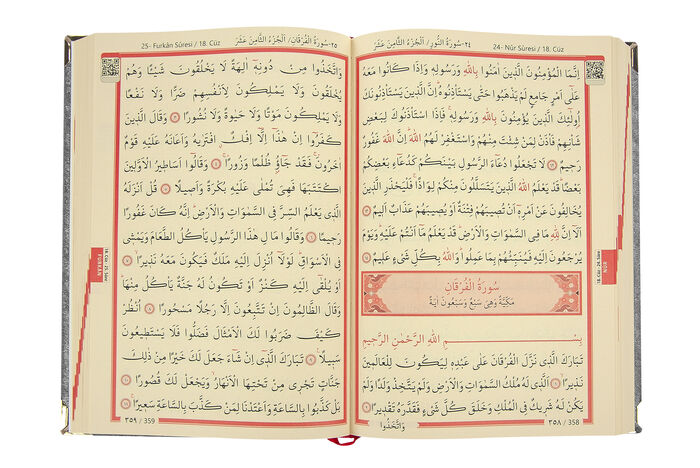 24- Nûr Sûresi / 18. Cüz
٢٤- سُورَةُ النُّورِ / اَلْجُزْءُ الثَّامِنَ عَشَرَ
اِنَّمَا الْمُؤْمِنُونَ الَّذٖينَ اٰمَنُوا بِاللّٰهِ وَرَسُولِهٖ وَاِذَا كَانُوا مَعَهُ
عَلٰٓى اَمْرٍ جَامِعٍ لَمْ يَذْهَبُوا حَتّٰى يَسْتَأْذِنُوهُ اِنَّ الَّذٖينَ يَسْتَأْذِنُونَكَ
اُو۬لٰٓئِكَ الَّذٖينَ يُؤْمِنُونَ بِاللّٰهِ وَرَسُولِهٖ فَاِذَا اسْتَأْذَنُوكَ لِبَعْضِ
شَأْنِهِمْ فَأْذَنْ لِمَنْ شِئْتَ مِنْهُمْ وَاسْتَغْفِرْ لَهُمُ اللّٰهَ اِنَّ اللّٰهَ غَفُورٌ
رَحٖيمٌ ۝٦٢ لَا تَجْعَلُوا دُعَٓاءَ الرَّسُولِ بَيْنَكُمْ كَدُعَٓاءِ بَعْضِكُمْ
بَعْضًا قَدْ يَعْلَمُ اللّٰهُ الَّذٖينَ يَتَسَلَّلُونَ مِنْكُمْ لِوَاذًا فَلْيَحْذَرِ الَّذٖينَ
يُخَالِفُونَ عَنْ اَمْرِهٖٓ اَنْ تُصٖيبَهُمْ فِتْنَةٌ اَوْ يُصٖيبَهُمْ عَذَابٌ اَلٖيمٌ ۝٦٣
اَلَٓا اِنَّ لِلّٰهِ مَا فِي السَّمٰوَاتِ وَالْاَرْضِ قَدْ يَعْلَمُ مَٓا اَنْتُمْ عَلَيْهِ وَيَوْمَ
يُرْجَعُونَ اِلَيْهِ فَيُنَبِّئُهُمْ بِمَا عَمِلُوا وَاللّٰهُ بِكُلِّ شَيْءٍ عَلٖيمٌ ۝٦٤
سُورَةُ الْفُرْقَانِ
مَكِّيَّةٌ وَهِيَ سَبْعٌ وَسَبْعُونَ اٰيَةً
بِسْمِ اللّٰهِ الرَّحْمٰنِ الرَّحٖيمِ
تَبَارَكَ الَّذٖي نَزَّلَ الْفُرْقَانَ عَلٰى عَبْدِهٖ لِيَكُونَ لِلْعَالَمٖينَ
نَذٖيرًا ۝١ اَلَّذٖي لَهُ مُلْكُ السَّمٰوَاتِ وَالْاَرْضِ وَلَمْ يَتَّخِذْ وَلَدًا وَلَمْ
يَكُنْ لَهُ شَرٖيكٌ فِي الْمُلْكِ وَخَلَقَ كُلَّ شَيْءٍ فَقَدَّرَهُ تَقْدٖيرًا ۝٢
وَاتَّخَذُوا
٣٥٨ / 358
18. Cüz - 24. Sûre
NÛR
25- Furkân Sûresi / 18. Cüz
٢٥- سُورَةُ الْفُرْقَانِ / اَلْجُزْءُ الثَّامِنَ عَشَرَ
وَاتَّخَذُوا مِنْ دُونِهٖٓ اٰلِهَةً لَا يَخْلُقُونَ شَيْـًٔا وَهُمْ
يُخْلَقُونَ وَلَا يَمْلِكُونَ لِاَنْفُسِهِمْ ضَرًّا وَلَا نَفْعًا
وَلَا يَمْلِكُونَ مَوْتًا وَلَا حَيٰوةً وَلَا نُشُورًا ۝٣ وَقَالَ الَّذٖينَ
كَفَرُٓوا اِنْ هٰذَٓا اِلَّٓا اِفْكٌۨ افْتَرٰيهُ وَاَعَانَهُ عَلَيْهِ قَوْمٌ
اٰخَرُونَ فَقَدْ جَٓاؤُ۫ ظُلْمًا وَزُورًا ۝٤ وَقَالُٓوا اَسَاطٖيرُ الْاَوَّلٖينَ
اكْتَتَبَهَا فَهِيَ تُمْلٰى عَلَيْهِ بُكْرَةً وَاَصٖيلًا ۝٥ قُلْ اَنْزَلَهُ
الَّذٖي يَعْلَمُ السِّرَّ فِي السَّمٰوَاتِ وَالْاَرْضِ اِنَّهُ كَانَ غَفُورًا
رَحٖيمًا ۝٦ وَقَالُوا مَالِ هٰذَا الرَّسُولِ يَأْكُلُ الطَّعَامَ وَيَمْشٖي
فِي الْاَسْوَاقِ لَوْلَٓا اُنْزِلَ اِلَيْهِ مَلَكٌ فَيَكُونَ مَعَهُ نَذٖيرًا ۝٧
اَوْ يُلْقٰٓى اِلَيْهِ كَنْزٌ اَوْ تَكُونُ لَهُ جَنَّةٌ يَأْكُلُ مِنْهَا
وَقَالَ الظَّالِمُونَ اِنْ تَتَّبِعُونَ اِلَّا رَجُلًا مَسْحُورًا ۝٨ اُنْظُرْ
كَيْفَ ضَرَبُوا لَكَ الْاَمْثَالَ فَضَلُّوا فَلَا يَسْتَطٖيعُونَ
سَبٖيلًا ۝٩ تَبَارَكَ الَّذٖٓي اِنْ شَٓاءَ جَعَلَ لَكَ خَيْرًا مِنْ ذٰلِكَ
جَنَّاتٍ تَجْرٖي مِنْ تَحْتِهَا الْاَنْهَارُ وَيَجْعَلْ لَكَ قُصُورًا ۝١٠
بَلْ كَذَّبُوا بِالسَّاعَةِ وَاَعْتَدْنَا لِمَنْ كَذَّبَ بِالسَّاعَةِ سَعٖيرًا ۝١١
٣٥٩ / 359
18. Cüz - 25. Sûre
FURKÂN